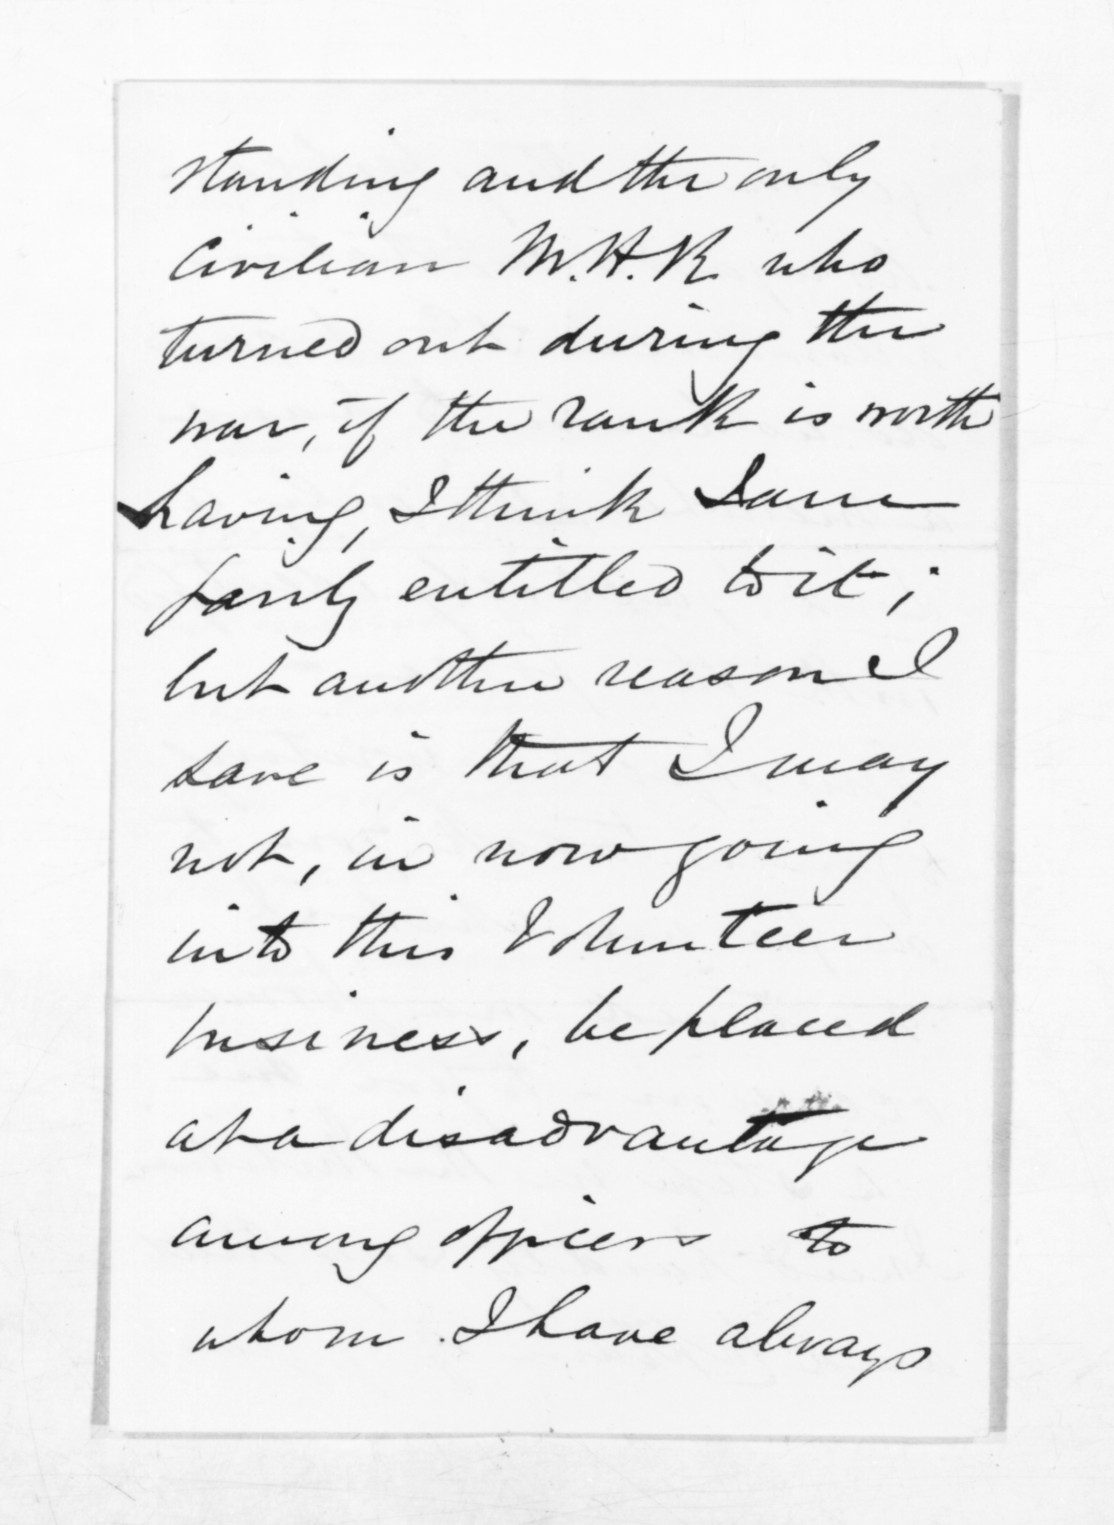 standing and the only
Civilian M.H.R. who
turned out during the
war, if the rank is worth
having, I think I am
fairly entitled to it;
but another reason I
have is that I may
not, in now going
into this Volunteer
business, be placed
at a disadvantage
among officers to
whom I have always